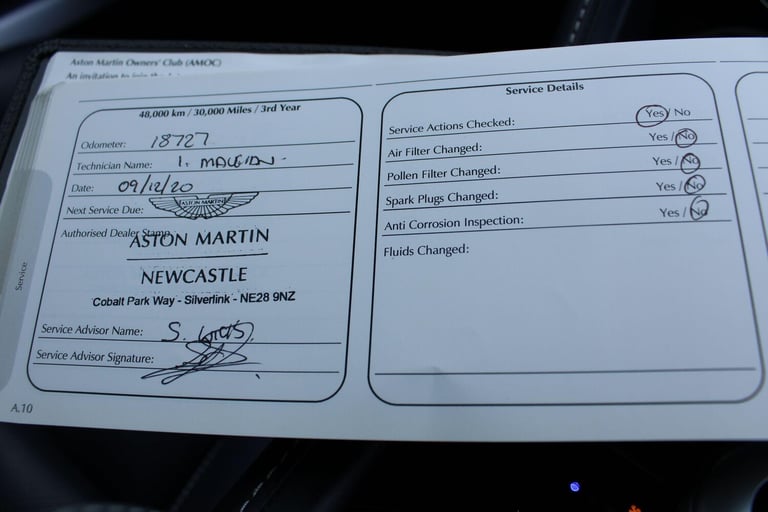 Aston Martin Owners' Club (AMOC)
An invitation to join the
48,000 km / 30,000 Miles / 3rd Year
Odometer: 18727
Technician Name: I.
Date: 09/12/20
Next Service Due:
ASTON MARTIN
Authorised Dealer Stamp
ASTON MARTIN
NEWCASTLE
Cobalt Park Way - Silverlink - NE28 9NZ
Service Advisor Name: S.
Service Advisor Signature:
A.10
Service
Service Details
Service Actions Checked: Yes / No
Air Filter Changed: Yes / No
Pollen Filter Changed: Yes / No
Spark Plugs Changed: Yes / No
Anti Corrosion Inspection: Yes / No
Fluids Changed: